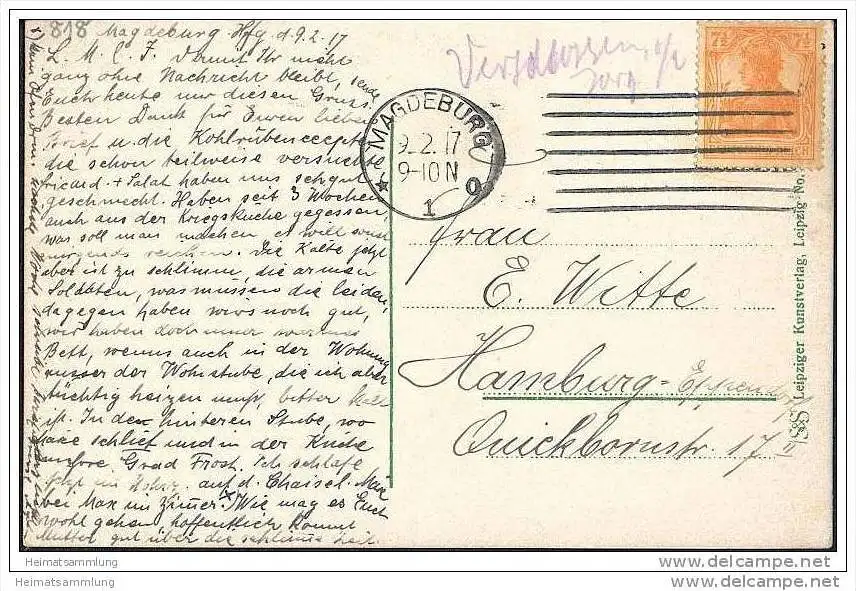 818 Magdeburg. Hfg. d. 9.2.17
L. M. L. F. Damit Ihr nicht
ganz ohne Nachricht bleibt, sende
Euch heute nur diesen Gruss.
Besten Dank für Euren lieben
Brief u. die Kohlrübenrecepte
die schon teilweise versuchte
fricard. + Salat haben uns sehr gut
geschmeckt. Haben seit 3 Wochen
auch aus der Kriegsküche gegessen,
was soll man machen es will sonst
nirgends reichen. Die Kälte jetzt
aber ist zu schlimm, die armen
Soldaten, was müssen die leiden,
dagegen haben wirs noch gut,
wir haben doch immer warmes
Bett, wenns auch in der Wohnung
ausser der Wohnstube, die ich aber
tüchtig heizen muss, bitter kalt
ist. In der hinteren Stube, wo
schlief und in der Küche
Grad Frost. Ich schlafe
jetzt auf d. Chaisel.
bei Max im Zimmer. Wie mag es Euch
wohl gehen, hoffentlich kommt
Mutter gut über die schlimme Zeit.
MAGDEBURG
9.2.17
9-10 N
1
7½ 7½
Frau
E. Witte
Hamburg-Eppendorf
Quickbornstr. 17 II
Leipziger Kunstverlag, Leipzig-No.
Heimatsammlung
Heimatsammlung
delcampe.net
delcampe.net